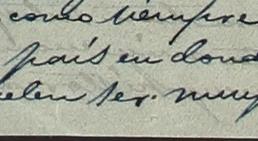 como siempre
país en dond
elen ser muy